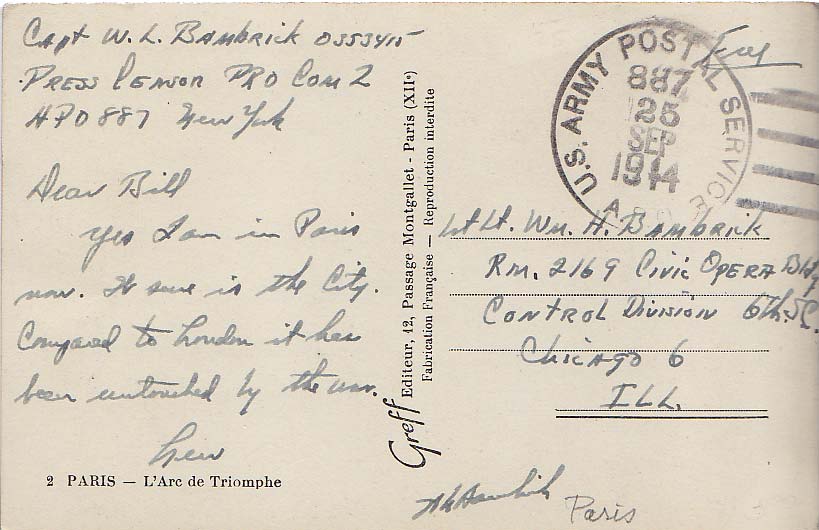 Capt W. L. Bambrick 0353415
Press Censor PRO Com Z
APO 887 New York
Dear Bill
Yes I am in Paris
now. It sure is the City.
Compared to London it has
been untouched by the war.
Lew
2 PARIS — L'Arc de Triomphe
Greff Editeur, 12, Passage Montgallet - Paris (XIIe)
Fabrication Française — Reproduction interdite
U.S. ARMY POSTAL SERVICE
887
25
SEP
1944
A.P.O.
Free
1st Lt. Wm. H. Bambrick
Rm. 2169 Civic Opera Bldg
Control Division 6th. SC.
Chicago 6
ILL.
Paris